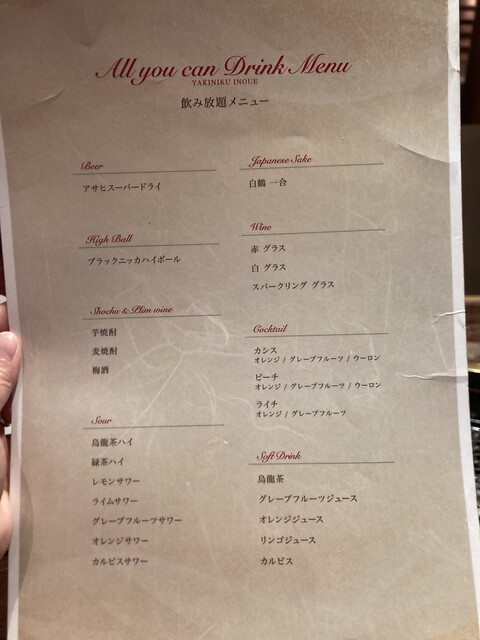 All you can Drink Menu
YAKINIKU INOUE
飲み放題メニュー
Beer
アサヒスーパードライ
High Ball
ブラックニッカハイボール
Shochu & Plim wine
芋焼酎
麦焼酎
梅酒
Sour
烏龍茶ハイ
緑茶ハイ
レモンサワー
ライムサワー
グレープフルーツサワー
オレンジサワー
カルピスサワー
Japanese Sake
白鶴 一合
Wine
赤 グラス
白 グラス
スパークリング グラス
Cocktail
カシス
オレンジ / グレープフルーツ / ウーロン
ピーチ
オレンジ / グレープフルーツ / ウーロン
ライチ
オレンジ / グレープフルーツ
Soft Drink
烏龍茶
グレープフルーツジュース
オレンジジュース
リンゴジュース
カルピス